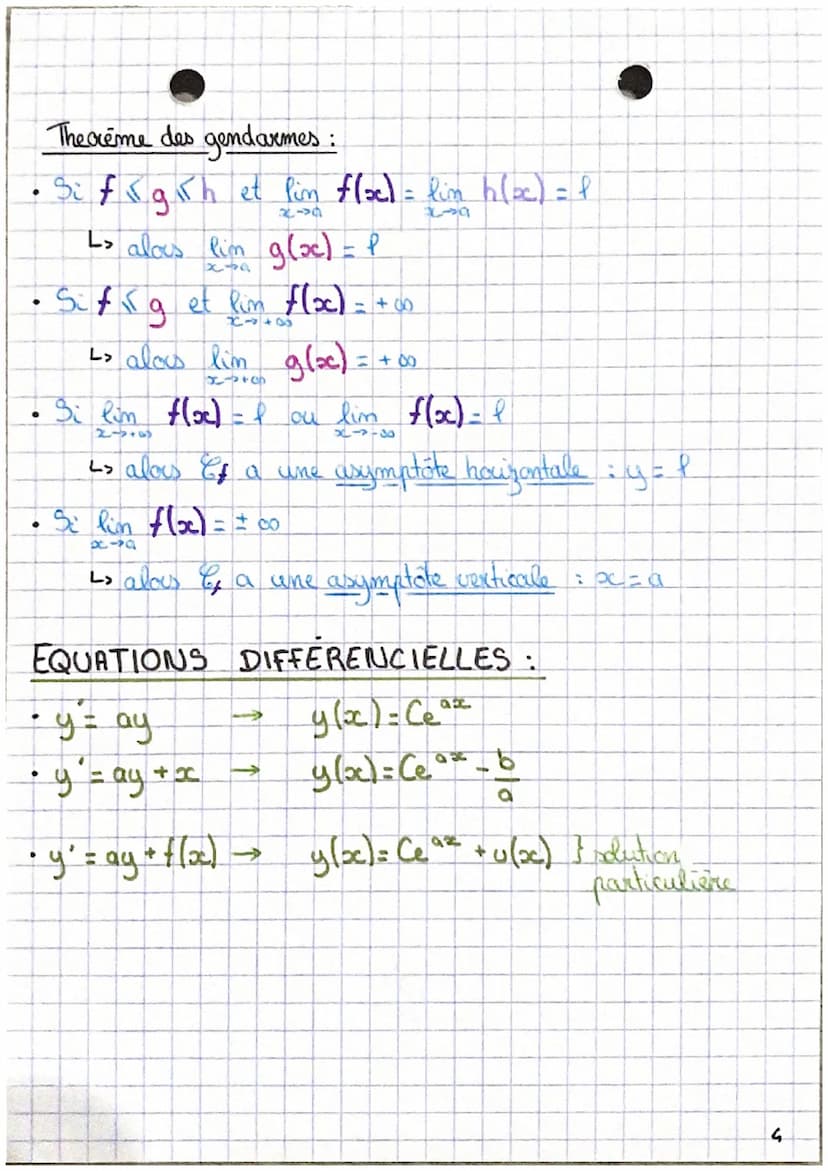 Theorème des gendarmes :
• Si f ⩽ g ⩽ h et lim x→a f(x) = lim x→a h(x) = ℓ
↳ alors lim x→a g(x) = ℓ
• Si f ⩽ g et lim x→+∞ f(x) = +∞
↳ alors lim x→+∞ g(x) = +∞
• Si lim x→+∞ f(x) = ℓ ou lim x→-∞ f(x) = ℓ
↳ alors 𝒞f a une asymptôte horizontale : y = ℓ
• Si lim x→a f(x) = ± ∞
↳ alors 𝒞f a une asymptôte verticale : x = a
EQUATIONS DIFFÉRENCIELLES :
• y' = ay → y(x) = Ce^ax
• y' = ay + x → y(x) = Ce^ax - b/a
• y' = ay + f(x) → y(x) = Ce^ax + u(x) } solution
particulière
4